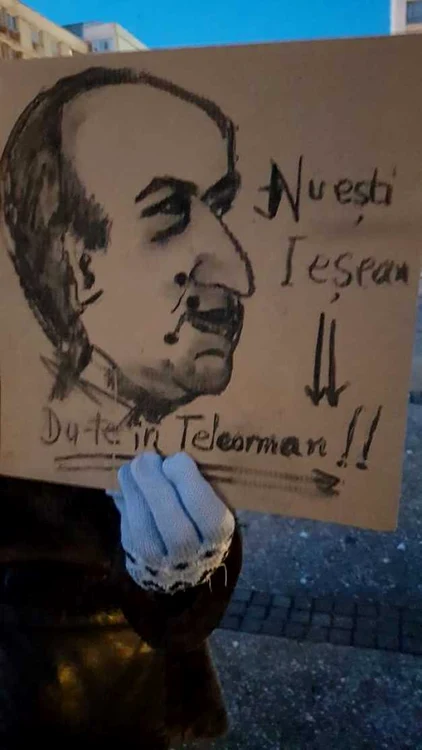 Nu ești
Ieșean
Du-te în Teleorman!!